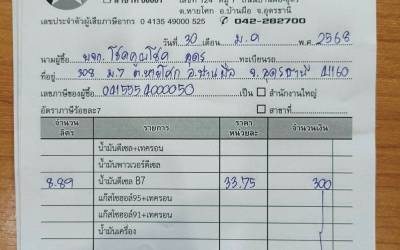 สาขาที่ 00001 เลขที่ 124 หมู่ 7
ต.หายโศก อ.บ้านผือ จ.อุดรธานี
เลขประจำตัวผู้เสียภาษีอากร 0 4135 49000 525 042-282700
วันที่ 30 เดือน ม.ค พ.ศ. 2568
นามผู้ซื้อ หจก. โชคคูณโชค อุดร ทะเบียนรถ
ที่อยู่ 308 ม.7 ต.หายโศก อ.บ้านผือ จ.อุดรธานี 41160
เลขภาษีของผู้ซื้อ 0415554000050 เป็น สำนักงานใหญ่
อัตราภาษีร้อยละ7 สาขาที่
จำนวน ลิตร รายการ ราคา หน่วยละ จำนวนเงิน
น้ำมันดีเซล+เทครอน
น้ำมันพาวเวอร์ดีเซล
8.89 น้ำมันดีเซล B7 33.75 300
แก๊สโซฮอล์95+เทครอน
แก๊สโซฮอล์91+เทครอน
น้ำมันเครื่อง